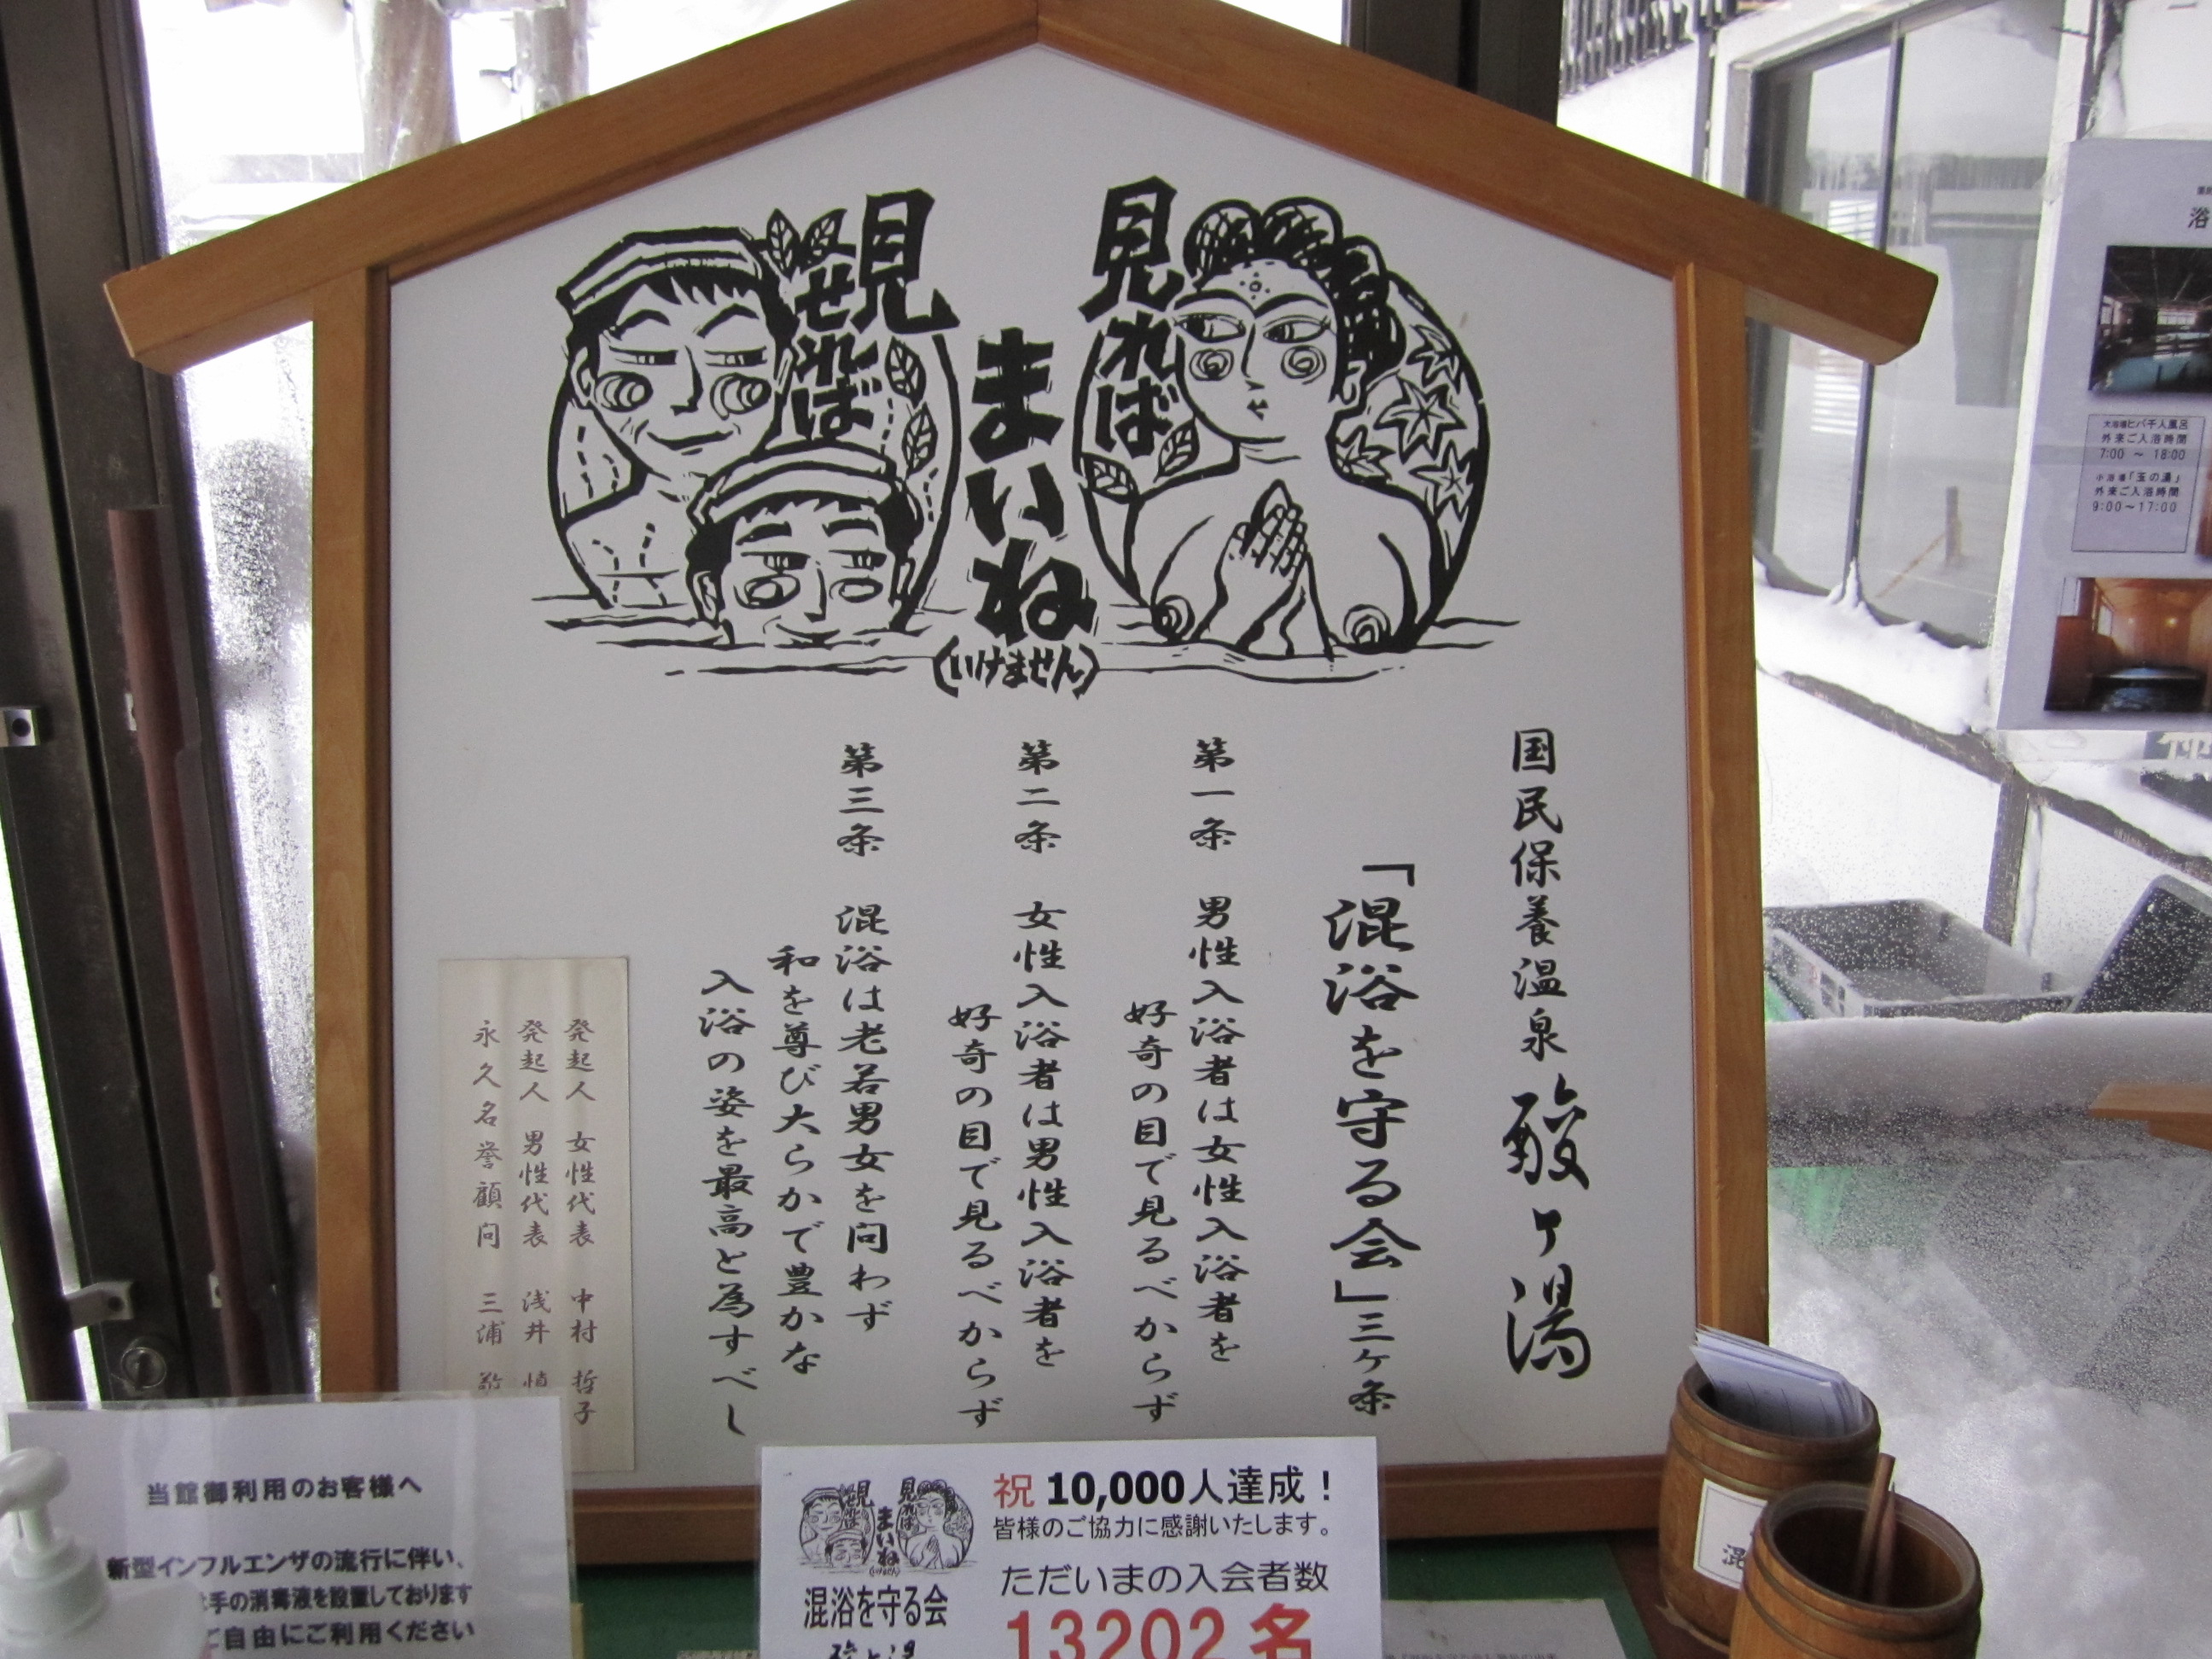 見れば
見せれば
まいね
(いけません)
国民保養温泉 酸ヶ湯
「混浴を守る会」三ヶ条
第一条 男性入浴者は女性入浴者を
好奇の目で見るべからず
第二条 女性入浴者は男性入浴者を
好奇の目で見るべからず
第三条 混浴は老若男女を問わず
和を尊び大らかで豊かな
入浴の姿を最高と為すべし
発起人 女性代表 中村 哲子
発起人 男性代表 浅井
永久名誉顧問 三浦 敬
当館御利用のお客様へ
新型インフルエンザの流行に伴い、
手の消毒液を設置しております
ご自由にご利用ください
見れば
見せれば
まいね
(いけません)
混浴を守る会
祝 10,000人達成!
皆様のご協力に感謝いたします。
ただいまの入会者数
13202名
浴
大浴場ヒバ千人風呂
外来ご入浴時間
7:00 ~ 18:00
小浴場「玉の湯」
外来ご入浴時間
9:00~17:00
混